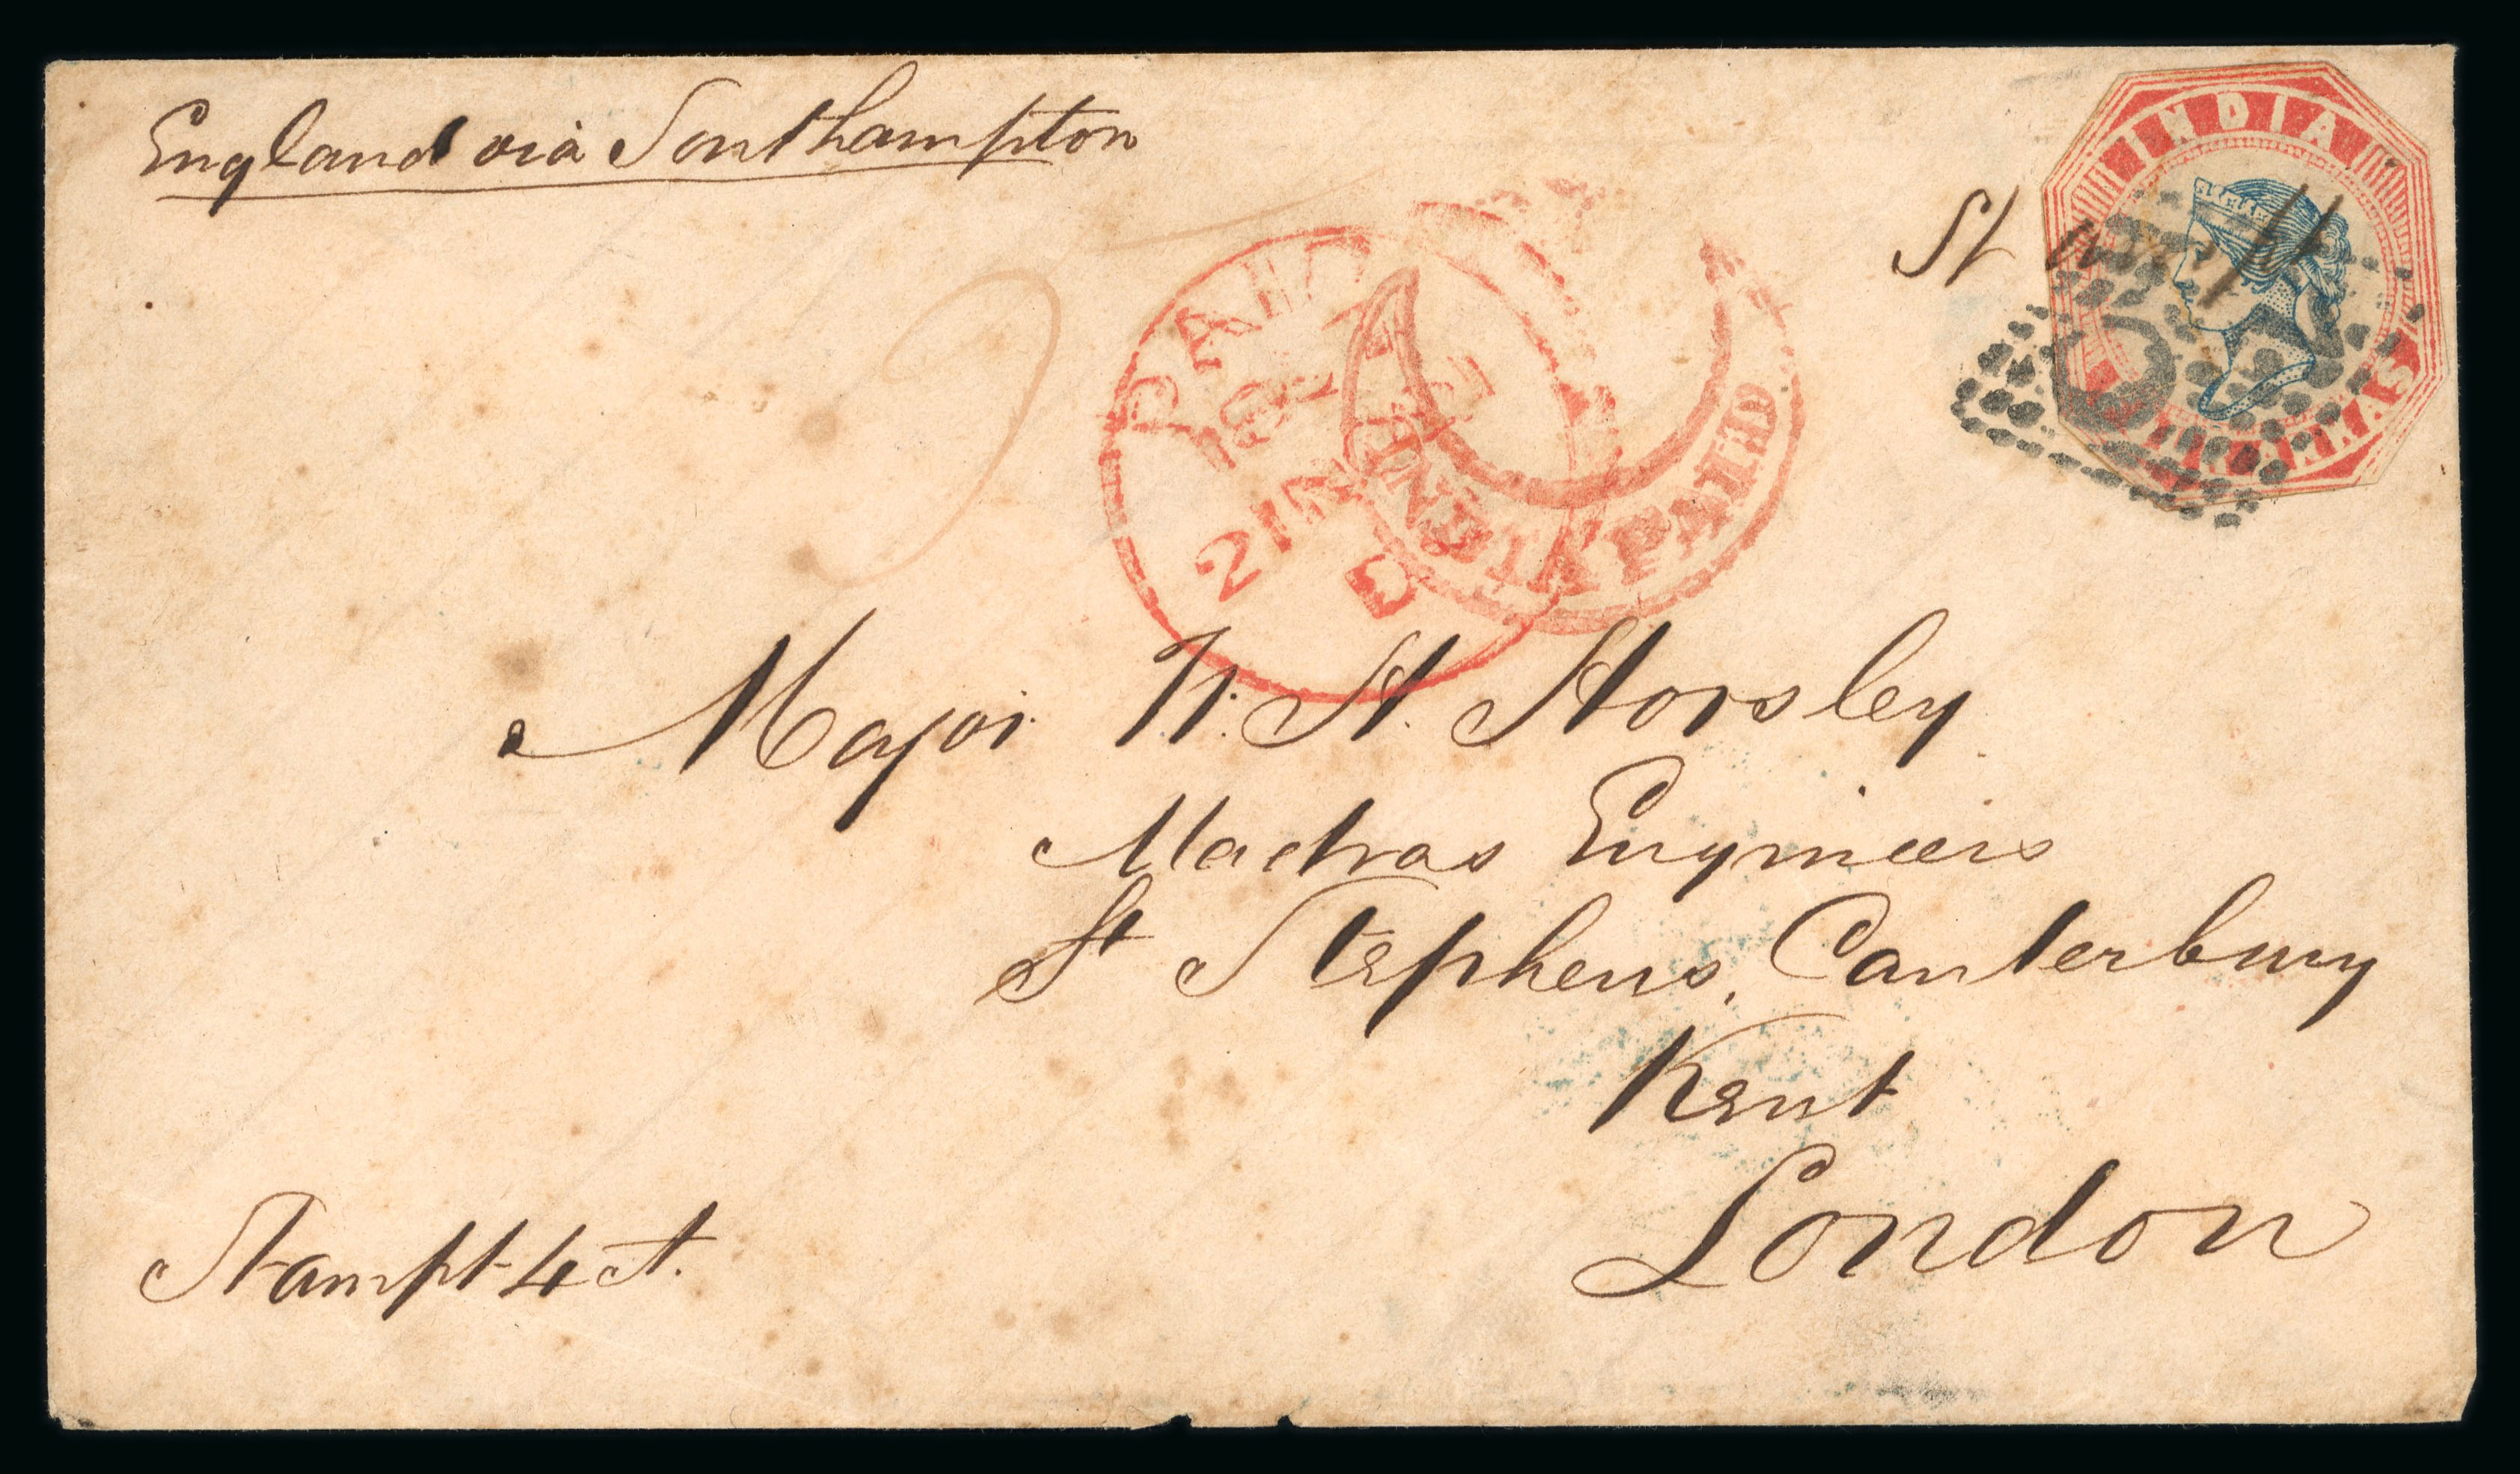 England via Southampton
INDIA
St
FOUR ANNAS
PAID
21 NO
D
INDIA PAID
Major W. H. Horsley
Madras Engineers
St Stephens, Canterbury
Kent
London
Stampt 4 A.